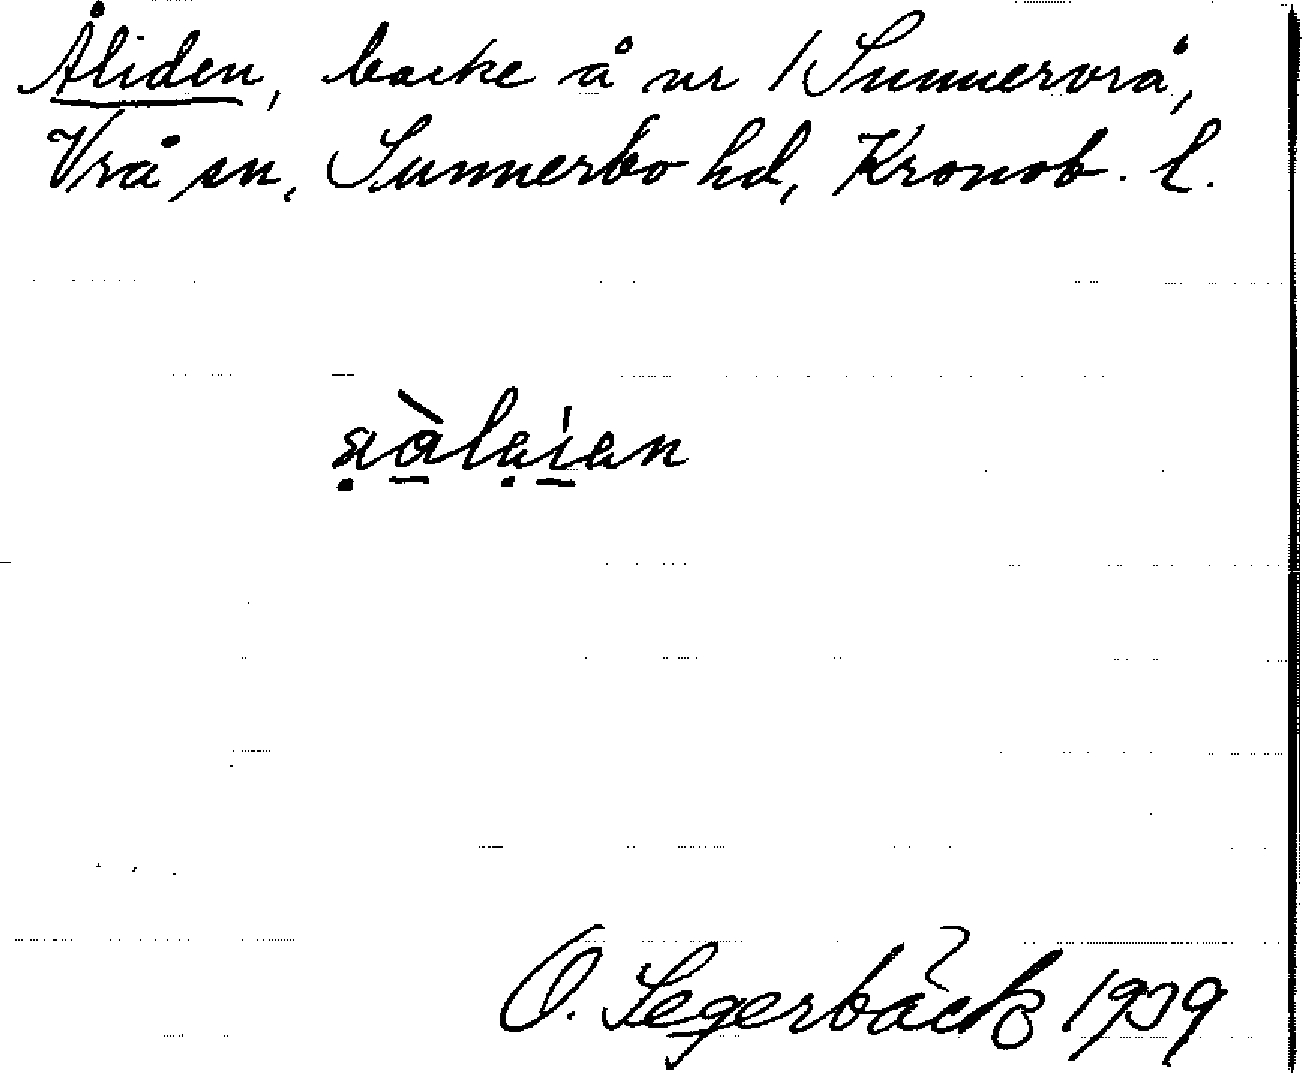 Åliden, backe å nr 1 Sunnervrå,
Vrå sn, Sunnerbo hd, Kronob. l.
O. Segerbäck 1939